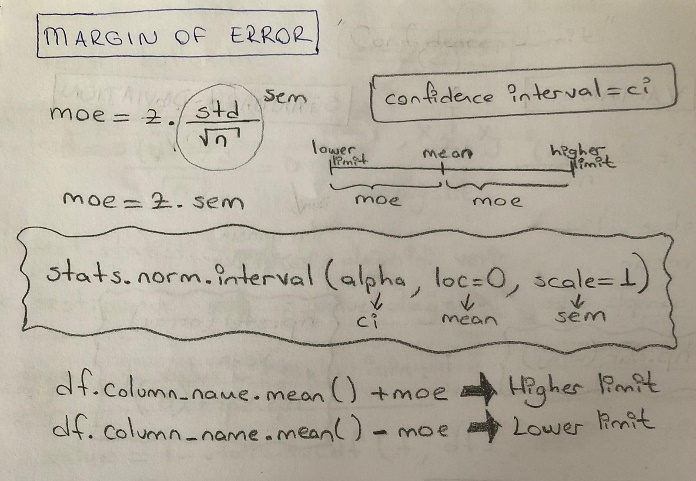 MARGIN OF ERROR
moe = z . std / √n sem
confidence interval = ci
lower limit mean higher limit
moe moe
moe = z . sem
stats.norm.interval (alpha, loc=0, scale=1)
ci mean sem
df.column_name.mean() + moe → Higher limit
df.column_name.mean() - moe → Lower limit